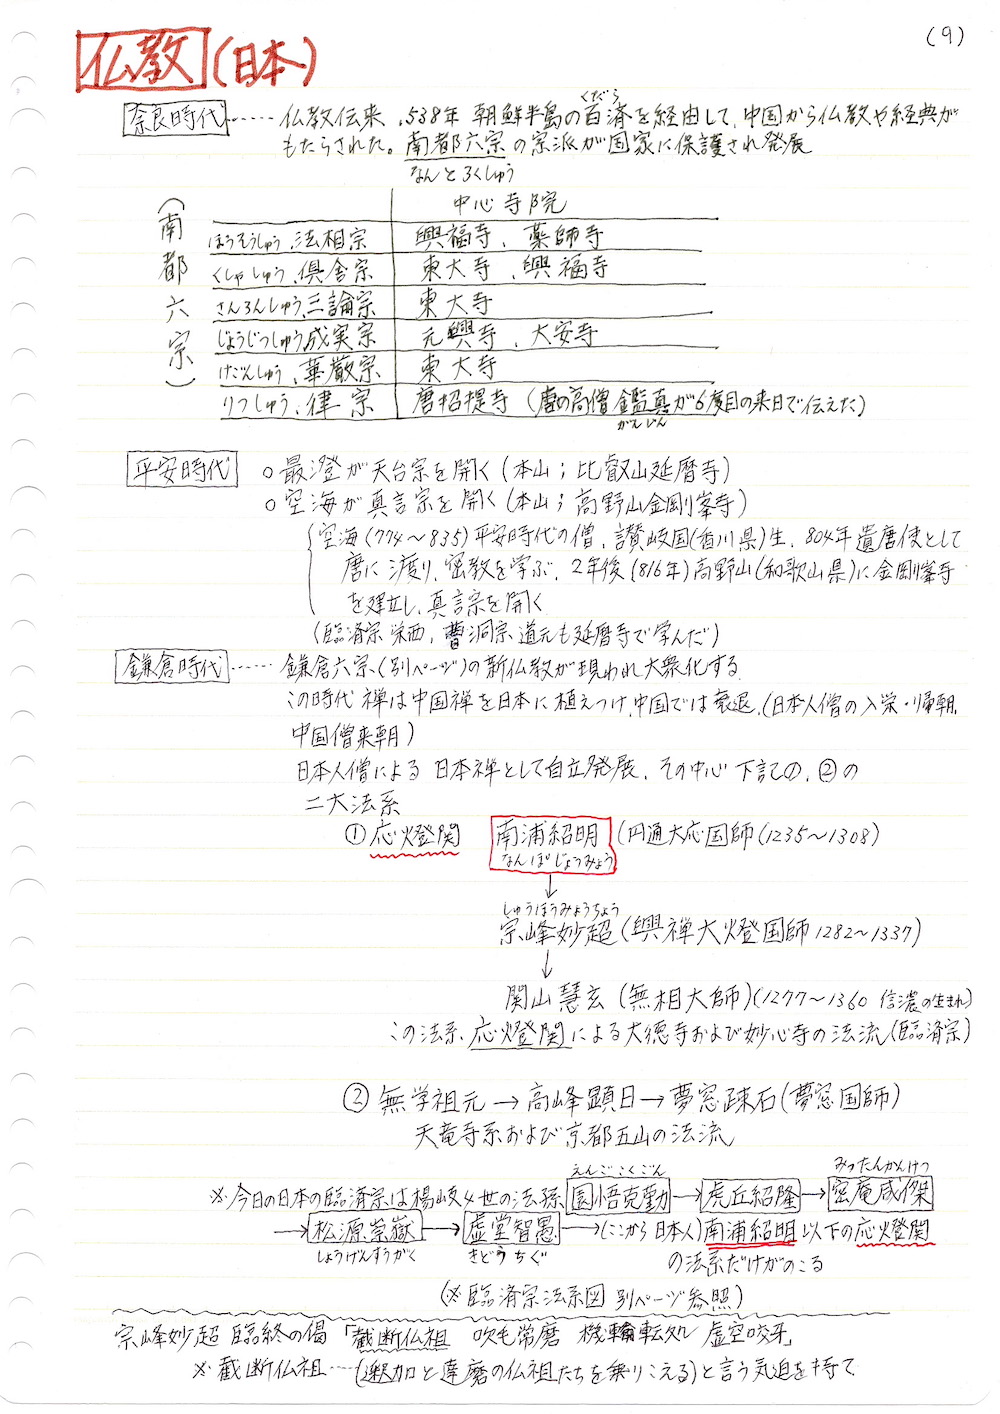 (9)
仏教(日本)
奈良時代……仏教伝来、538年 朝鮮半島の百済を経由して、中国から仏教や経典が
くだら
もたらされた。南都六宗の宗派が国家に保護され発展
なんとろくしゅう
(南都六宗)
中心寺院
ほうそうしゅう、法相宗 興福寺、薬師寺
くしゃしゅう、倶舎宗 東大寺、興福寺
さんろんしゅう、三論宗 東大寺
じょうじつしゅう成実宗 元興寺、大安寺
けごんしゅう、華厳宗 東大寺
りつしゅう、律宗 唐招提寺(唐の高僧鑑真が6度目の来日で伝えた)
がんじん
平安時代 ○最澄が天台宗を開く(本山;比叡山延暦寺)
○空海が真言宗を開く(本山;高野山金剛峯寺)
空海(774~835)平安時代の僧、讃岐国(香川県)生、804年遣唐使として
唐に渡り、密教を学ぶ、2年後(816年)高野山(和歌山県)に金剛峯寺
を建立し、真言宗を開く
(臨済宗栄西、曹洞宗道元も延暦寺で学んだ)
鎌倉時代……鎌倉六宗(別ページ)の新仏教が現われ大衆化する
この時代 禅は中国禅を日本に植えつけ、中国では衰退、(日本人僧の入栄・帰朝、
中国僧来朝)
日本人僧による 日本禅として自立発展、その中心 下記の、②の
二大法系
①応燈関 南浦紹明(円通大応国師(1235~1308)
なんぽじょうみょう
↓
しゅうほうみょうちょう
宗峰妙超(興禅大燈国師1282~1337)
↓
関山慧玄(無相大師)(1277~1360 信濃の生まれ)
この法系、応燈関による大徳寺および妙心寺の法流(臨済宗)
②無学祖元→高峰顕日→夢窓疎石(夢窓国師)
天竜寺系および京都五山の法流
えんごこくごん みったんかんけつ
※今日の日本の臨済宗は楊岐4世の法孫圜悟克勤→虎丘紹隆→密庵咸傑
→松源崇嶽→虚堂智愚→(ここから日本人)南浦紹明以下の応燈関
しょうげんすうがく きどうちぐ
の法系だけがのこる
(※臨済宗法系図 別ページ参照)
宗峰妙超 臨終の偈「截断仏祖 吹毛常磨 機輪転処 虚空咬牙」
※截断仏祖…(釈迦と達磨の仏祖たちを乗りこえる)と言う気迫を持て